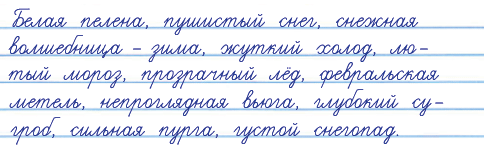 Белая пелена, пушистый снег, снежная
волшебница – зима, жуткий холод, лю-
тый мороз, прозрачный лёд, февральская
метель, непроглядная вьюга, глубокий су-
гроб, сильная пурга, густой снегопад.